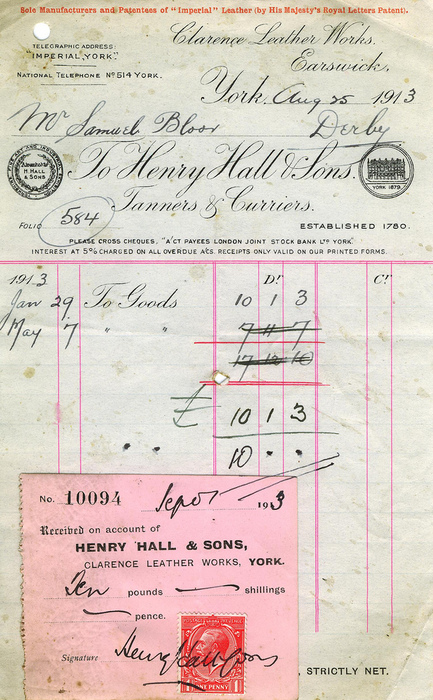 Sole Manufacturers and Patentees of "Imperial" Leather (by His Majesty's Royal Letters Patent).
TELEGRAPHIC ADDRESS:
"IMPERIAL, YORK."
NATIONAL TELEPHONE No 514 YORK.
Clarence Leather Works,
Earswick,
York, Aug 25 1913
Mr Samuel Bloor Derby
H. HALL & SONS
To Henry Hall & Sons.
YORK 1879.
Tanners & Curriers.
FOLIO 584
ESTABLISHED 1780.
PLEASE CROSS CHEQUES, "A/CT PAYEES LONDON JOINT STOCK BANK LTD YORK."
INTEREST AT 5% CHARGED ON ALL OVERDUE A/CS. RECEIPTS ONLY VALID ON OUR PRINTED FORMS.
1913 Dr Cr
Jan 29 To Goods 10 1 3
May 7 " " 7 11 7
17 12 10
£ 10 1 3
10
No. 10094 Sep 01 1913
Received on account of
HENRY HALL & SONS,
CLARENCE LEATHER WORKS, YORK.
Ten pounds shillings
pence.
Signature Henry Hall & Sons
POSTAGE REVENUE
ONE PENNY
, STRICTLY NET.